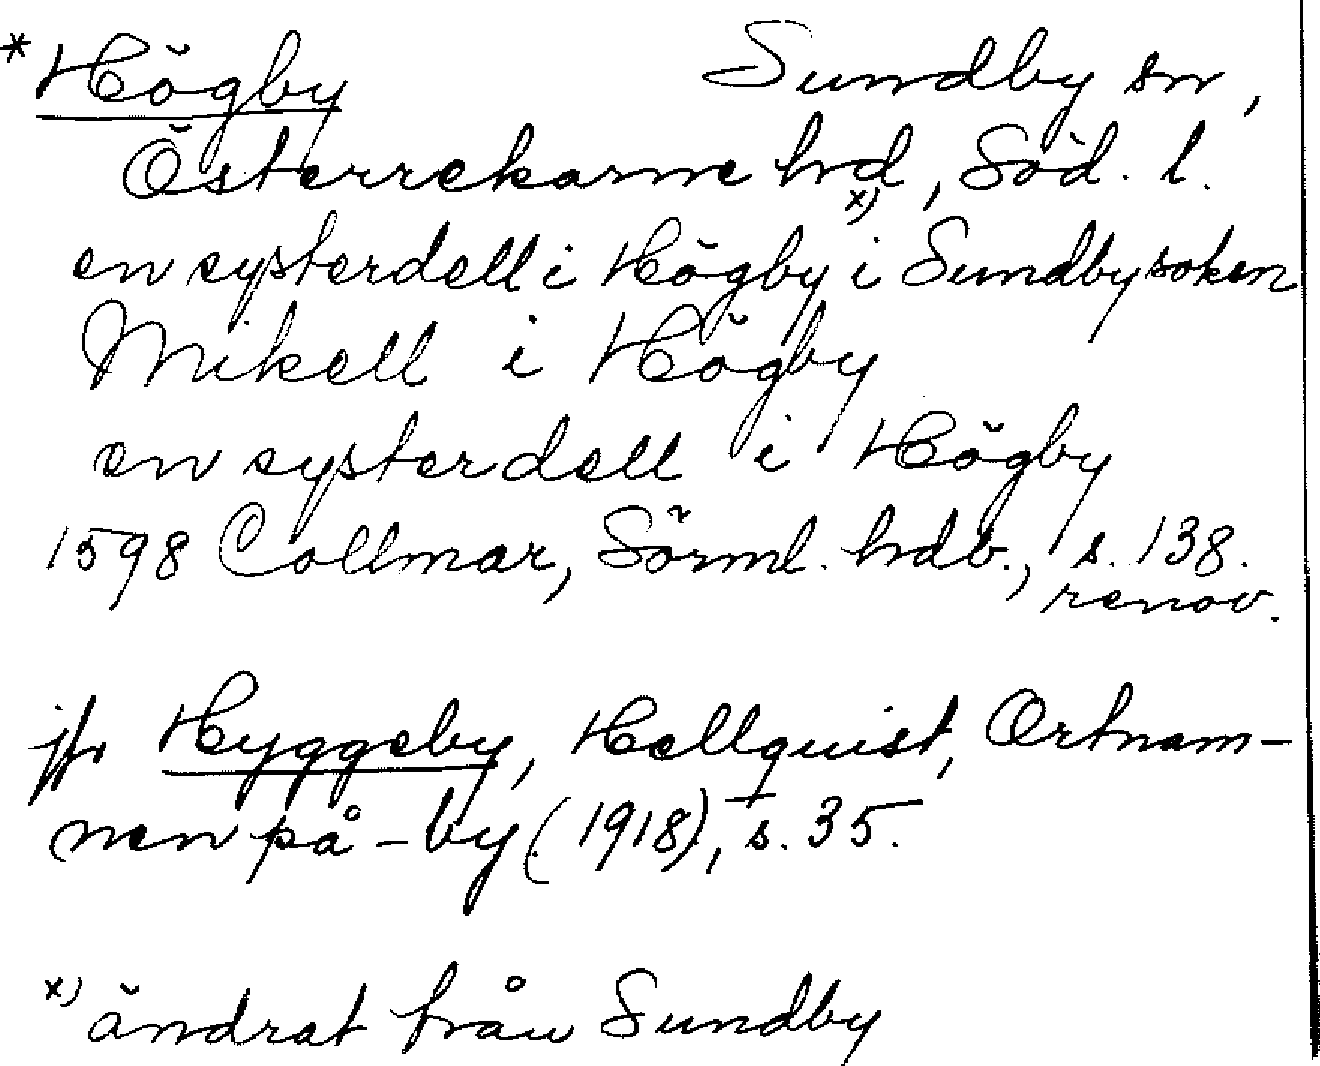 * Högby Sundby sn,
Österrekarne hd, Söd. l.
en systerdell i Högby x) i Sundby soken
Mikell i Högby
en systerdell i Högby
1598 Collmar, Sörml. hdb., s. 138.
renov.
jfr Hyggeby, Hellquist, Ortnam-
nen på -by (1918), s. 35.
x) ändrat från Sundby